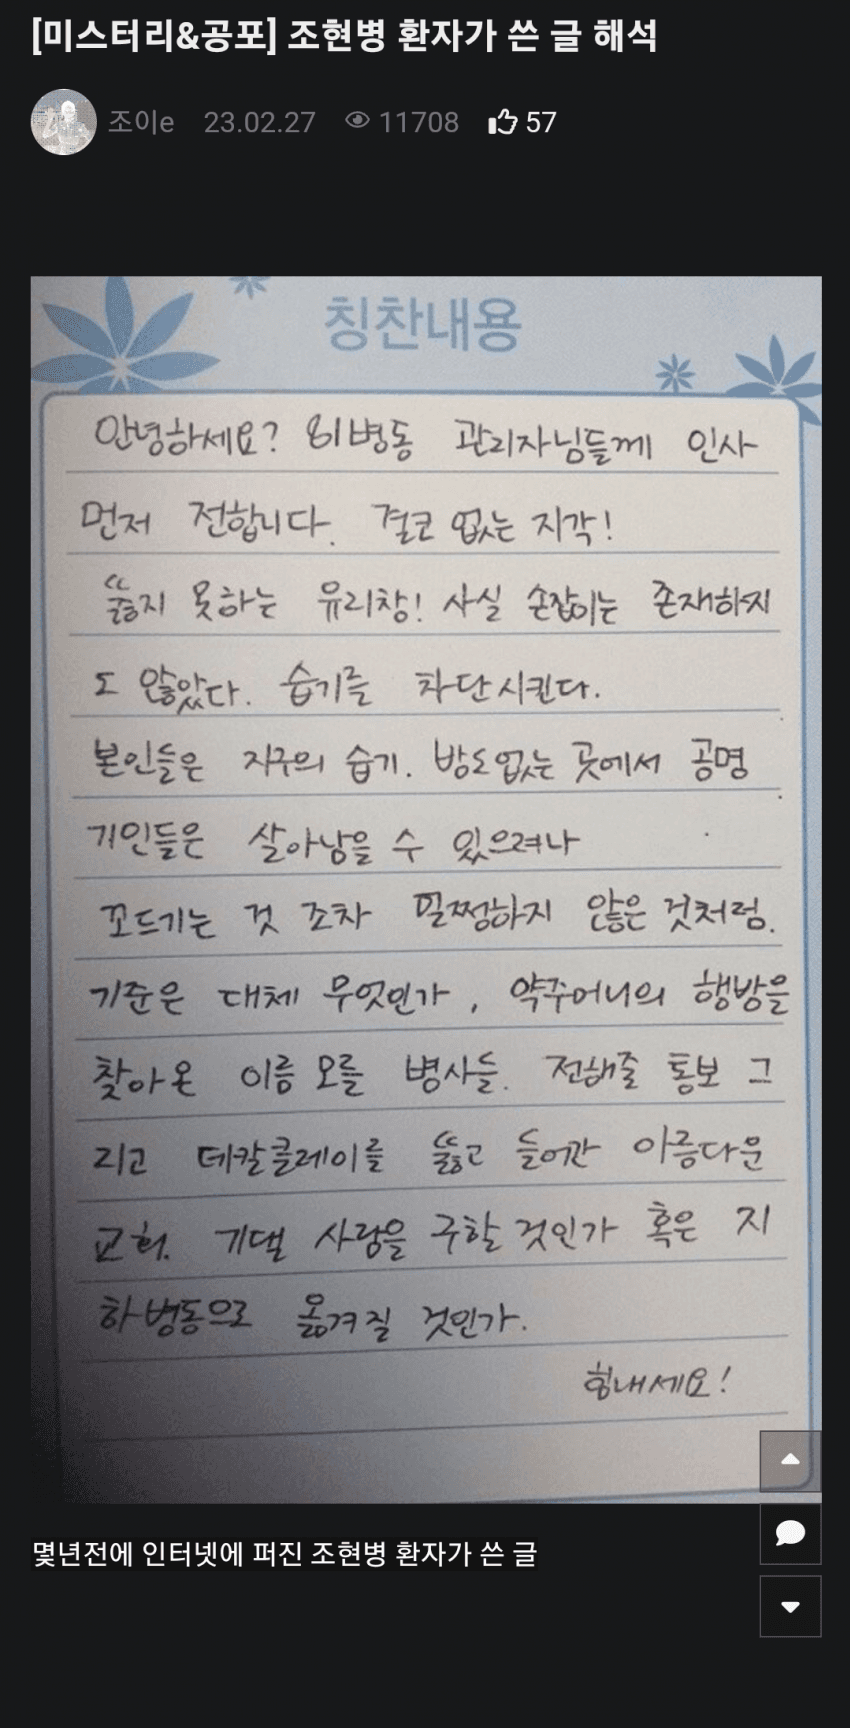 [미스터리&공포] 조현병 환자가 쓴 글 해석
조이e 23.02.27 11708 57
칭찬내용
안녕하세요? 81병동 관리자님들께 인사
먼저 전합니다. 결코 없는 지각!
뚫지 못하는 유리창! 사실 손잡이는 존재하지
도 않았다. 습기를 차단시킨다.
본인들은 지구의 습기. 방도없는 곳에서 공명
기인들은 살아남을 수 있으려나
꼬드기는 것 조차 멀쩡하지 않은 것처럼.
기준은 대체 무엇인가, 약주머니의 행방을
찾아온 이름 모를 병사들. 전해줄 통보 그
리고 데칼클레이를 뚫고 들어간 아름다운
교회. 기댈 사랑을 구할 것인가 혹은 지
하병동으로 옮겨질 것인가.
힘내세요!
몇년전에 인터넷에 퍼진 조현병 환자가 쓴 글